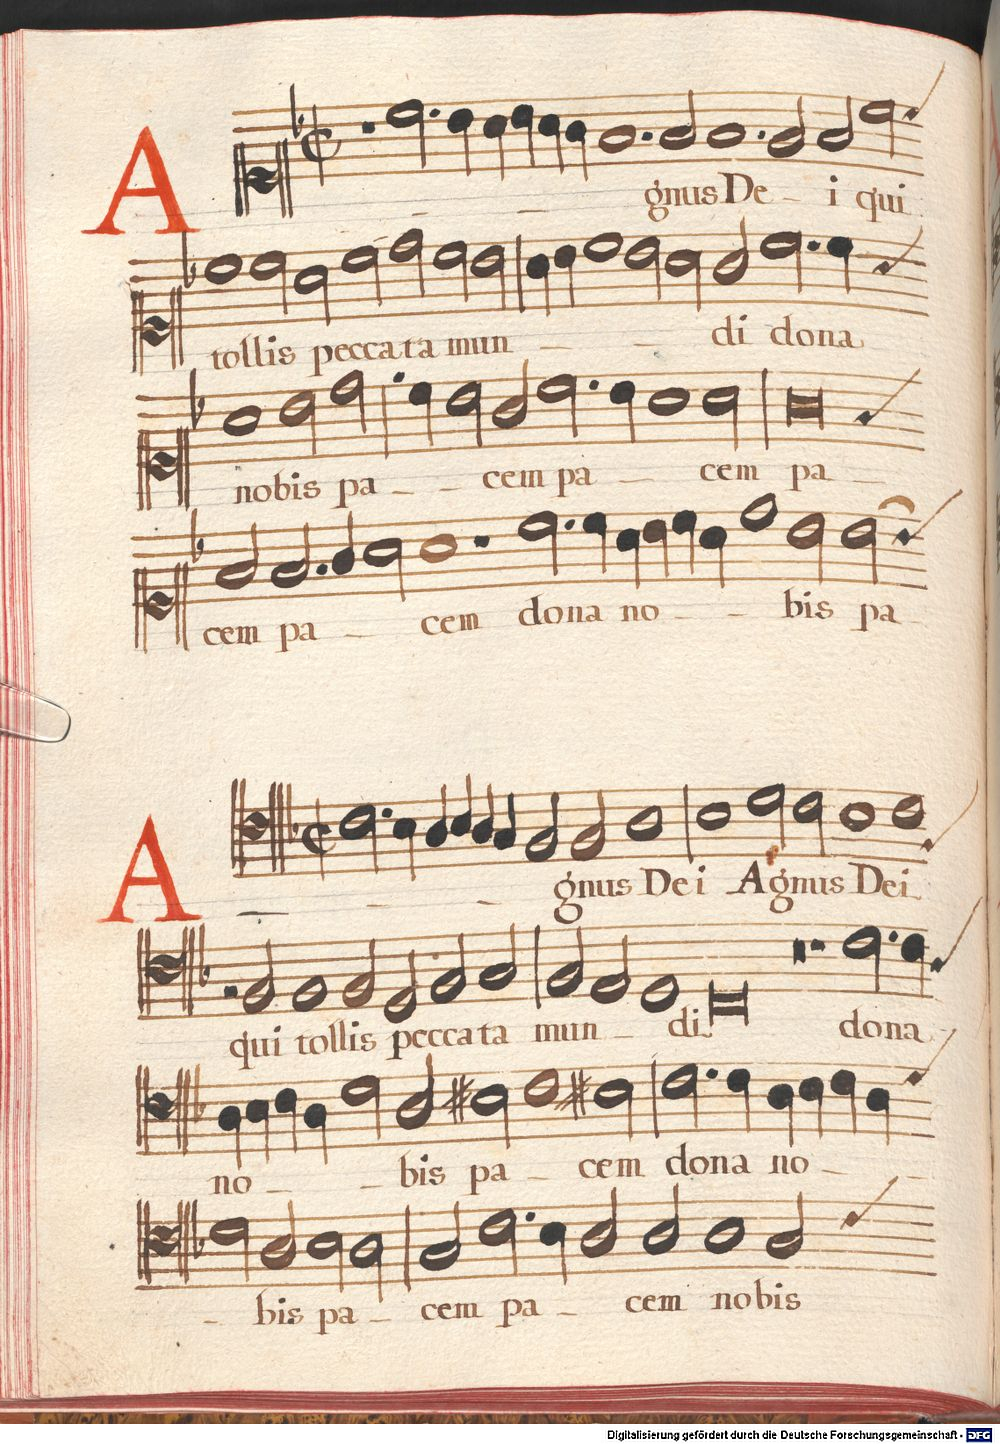 A gnus De - i qui
tollis peccata mun - - di dona
nobis pa - - cem pa - cem pa -
cem pa - cem dona no - - bis pa -
A - - - gnus Dei Agnus Dei
qui tollis peccata mun - di dona
no - - bis pa - cem dona no -
- bis pa - cem pa - cem nobis
Digitalisierung gefördert durch die Deutsche Forschungsgemeinschaft - DFG